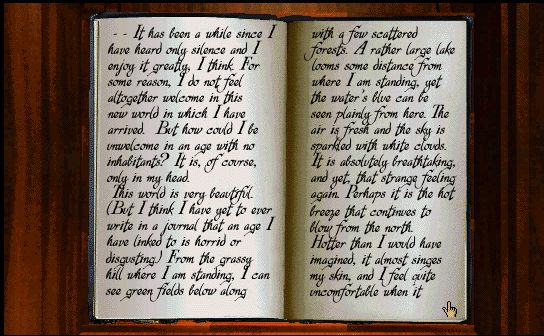 - - It has been a while since I
have heard only silence and I
enjoy it greatly, I think. For
some reason, I do not feel
altogether welcome in this
new world in which I have
arrived. But how could I be
unwelcome in an age with no
inhabitants? It is, of course,
only in my head.
This world is very beautiful.
(But I think I have yet to ever
write in a journal that an age I
have linked to is horrid or
disgusting.) From the grassy
hill where I am standing, I can
see green fields below along
with a few scattered
forests. A rather large lake
looms some distance from
where I am standing, yet
the water's blue can be
seen plainly from here. The
air is fresh and the sky is
sparkled with white clouds.
It is absolutely breathtaking,
and yet, that strange feeling
again. Perhaps it is the hot
breeze that continues to
blow from the north.
Hotter than I would have
imagined, it almost singes
my skin, and I feel quite
uncomfortable when it